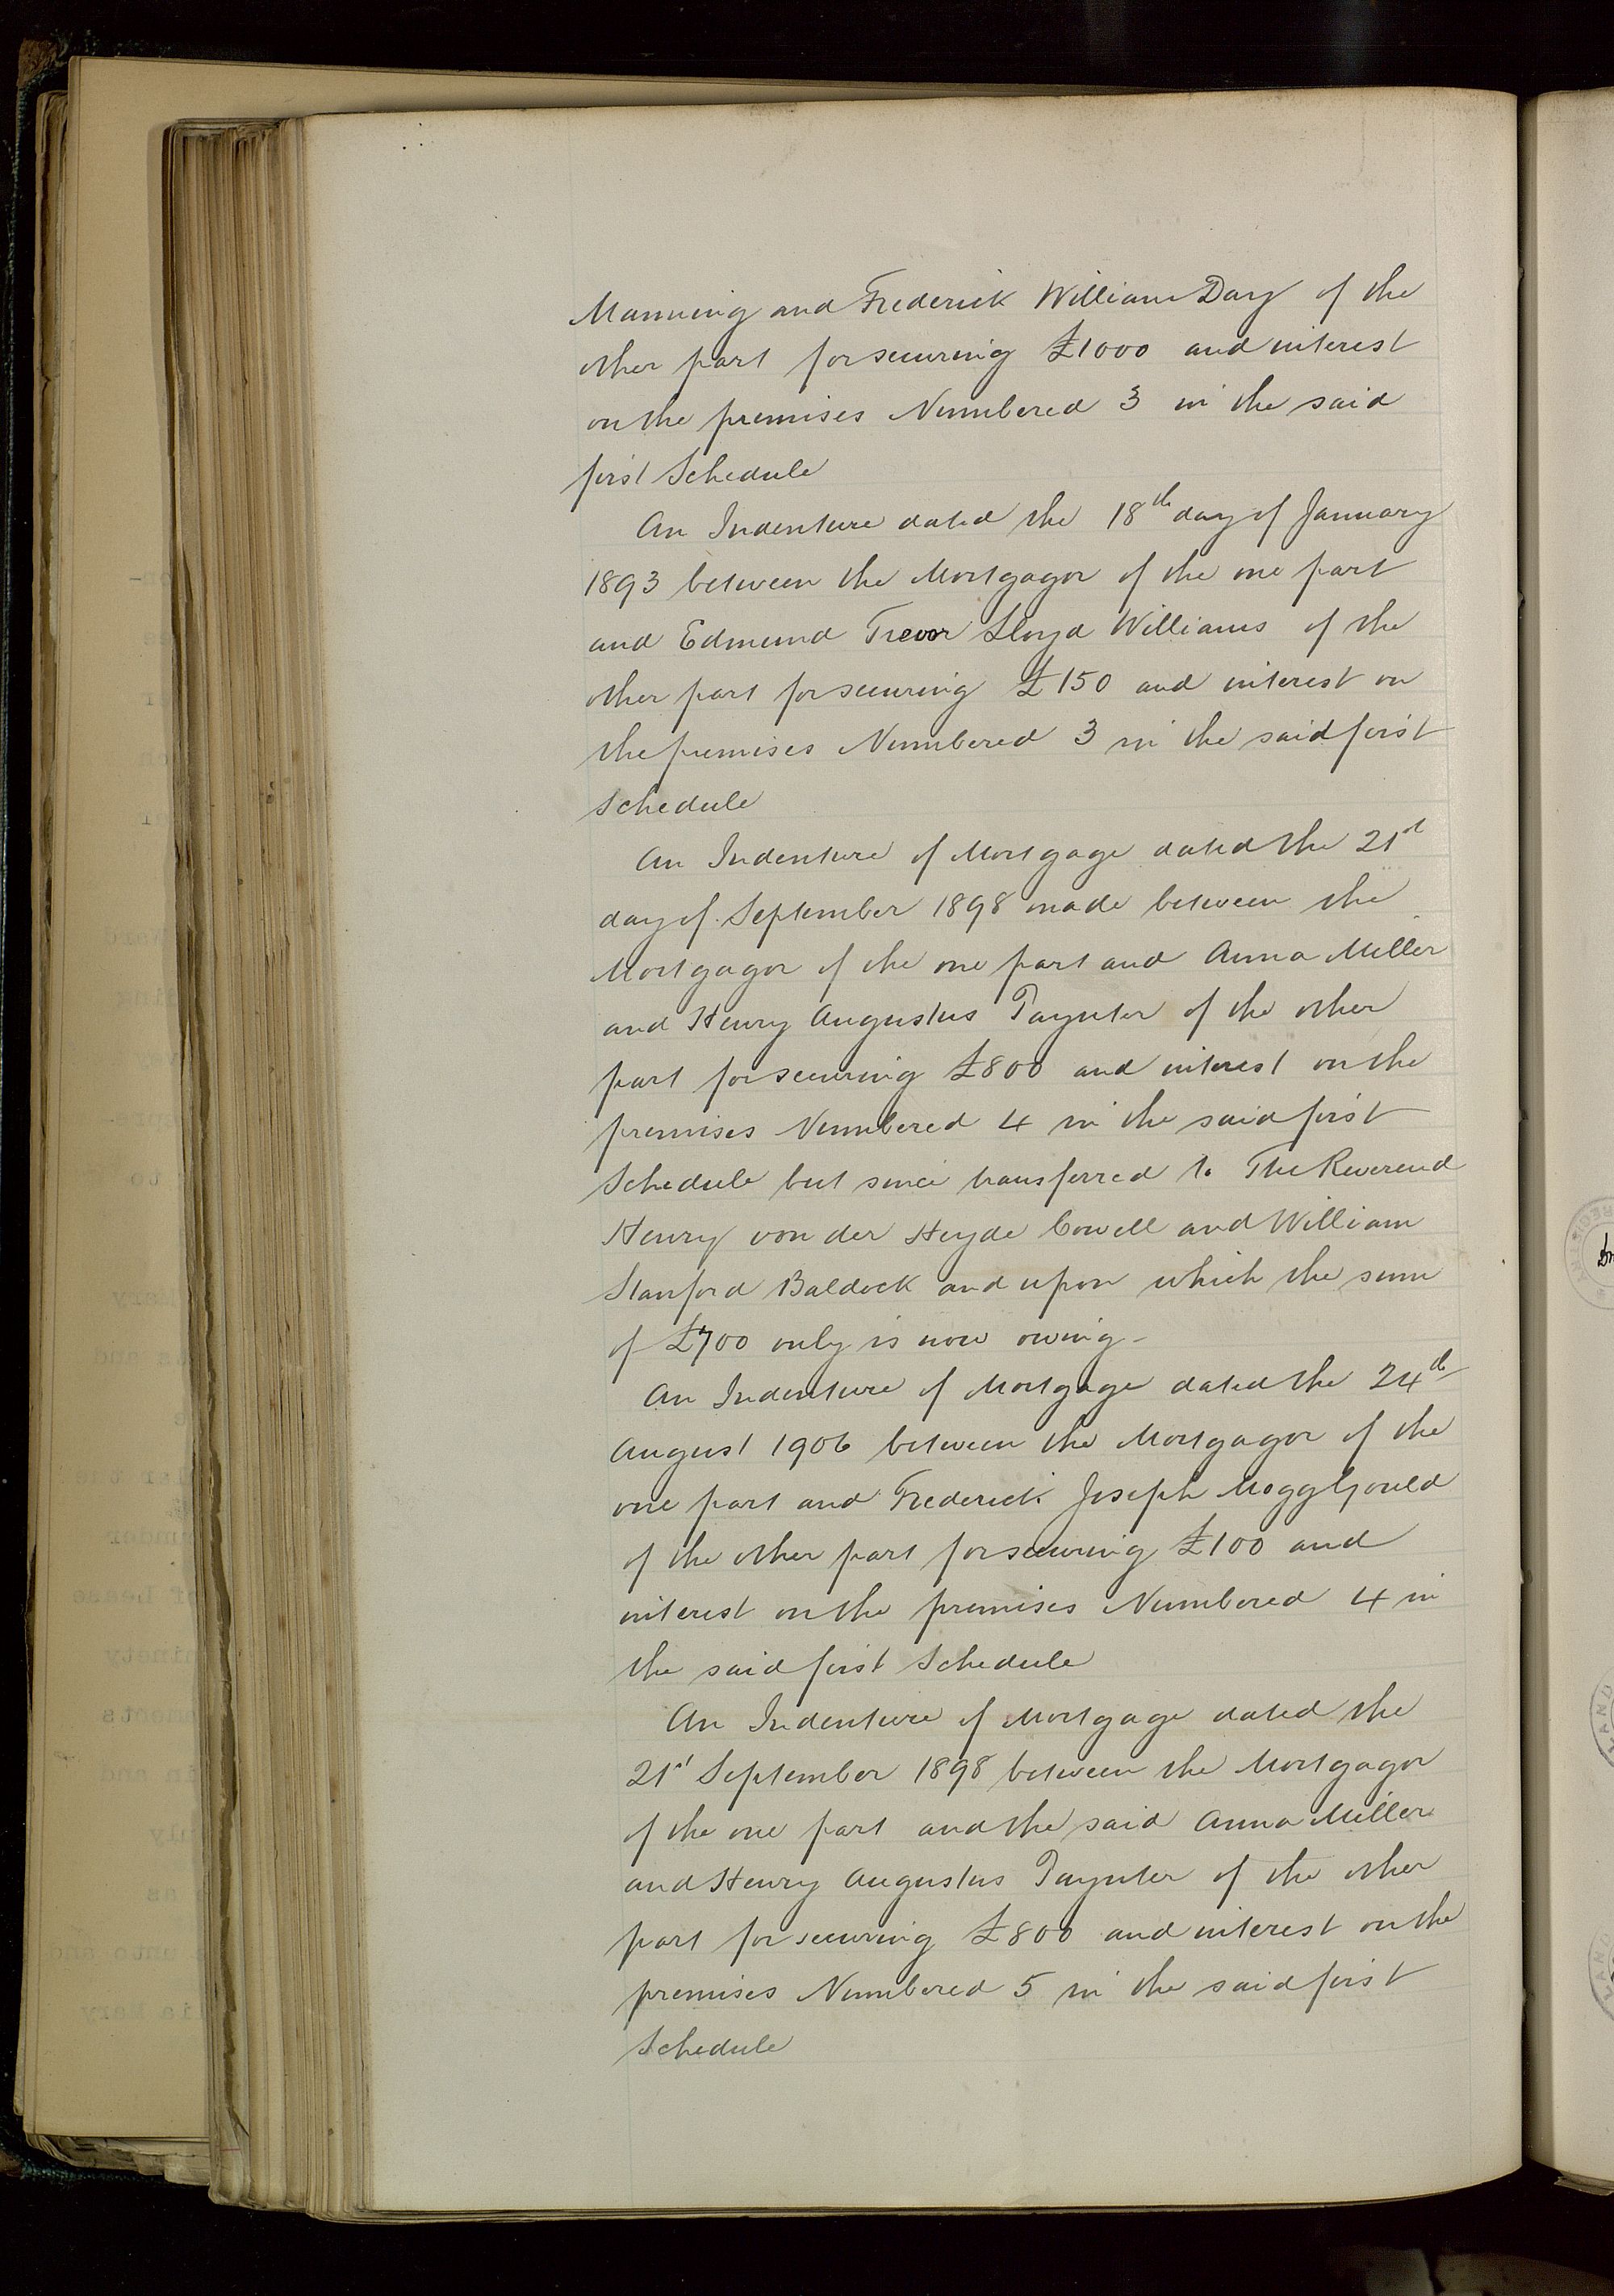 Manning and Frederick William Day of the
other part for securing £1000 and interest
on the premises Numbered 3 in the said
first Schedule
An Indenture dated the 18th day of January
1893 between the Mortgagor of the one part
and Edmund Trevor Lloyd Williams of the
other part for securing £150 and interest on
the premises Numbered 3 in the said first
Schedule
An Indenture of Mortgage dated the 21st
day of September 1898 made between the
Mortgagor of the one part and Anna Miller
and Henry Augustus Paynter of the other
part for securing £800 and interest on the
premises Numbered 4 in the said first
Schedule but since transferred to The Reverend
Henry von der Heyde Cowell and William
Stanford Baldock and upon which the sum
of £700 only is now owing -
An Indenture of Mortgage dated the 24th
August 1906 between the Mortgagor of the
one part and Frederick Joseph Mogg Gould
of the other part for securing £100 and
interest on the premises Numbered 4 in
the said first Schedule
An Indenture of Mortgage dated the
21st September 1898 between the Mortgagor
of the one part and the said Anna Miller
and Henry Augustus Paynter of the other
part for securing £800 and interest on the
premises Numbered 5 in the said first
Schedule